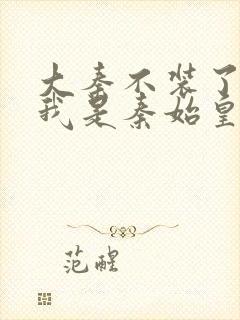 大秦不装了
我是秦始皇
范醒